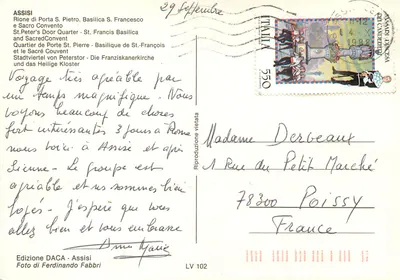 ASSISI
Rione di Porta S. Pietro, Basilica S. Francesco
e Sacro Convento
St. Peter's Door Quarter - St. Francis Basilica
and SacredConvent
Quartier de Porte St. Pierre - Basilique de St-François
et le Sacré Couvent
Stadtviertel von Peterstor - Die Franziskanerkirche
und das Heilige Kloster
29 Septembre
Voyage très agréable par
un temps magnifique - Nous
voyons beaucoup de choses
fort intéressantes 3 jours à Rome
nous voici à Assise et après
Sienne - Le groupe est
agréable et ns sommes bien
logés - J'espère que vous
allez bien et vous embrasse
Anne Marie
Edizione DACA - Assisi
Foto di Ferdinando Fabbri
LV 102
Riproduzione vietata
ITALIA
550
Madame Derveaux
1 Rue du Petit Marché
78300 Poissy
France